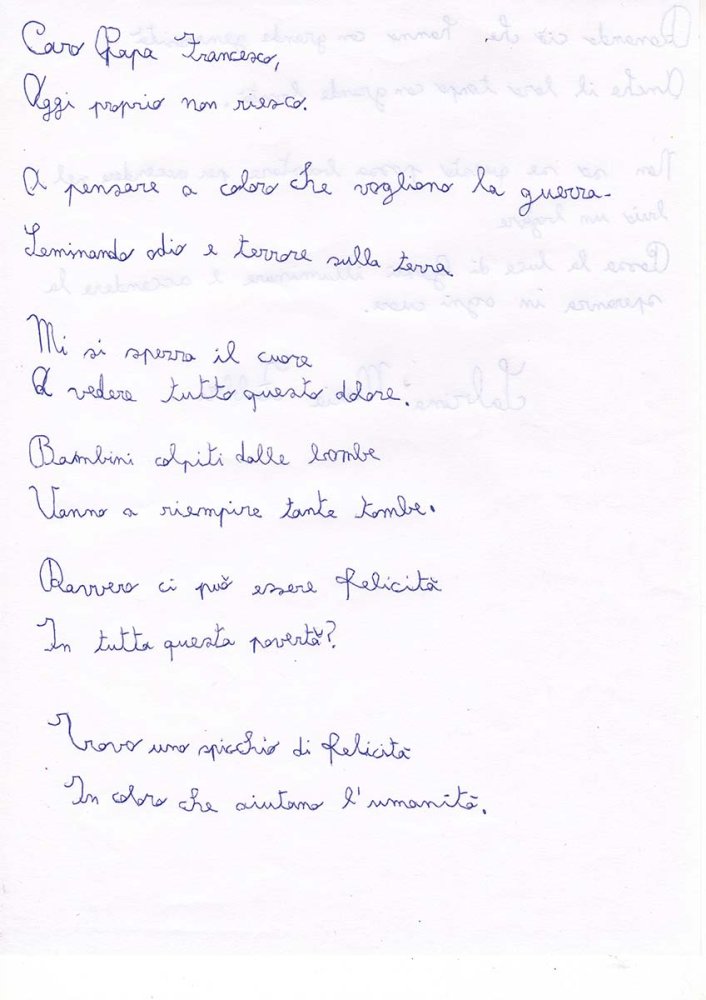 Caro Papa Francesco,
Oggi proprio non riesco.
A pensare a coloro che vogliono la guerra.
Seminando odio e terrore sulla terra
Mi si spezza il cuore
A vedere tutto questo dolore.
Bambini colpiti dalle bombe
Vanno a riempire tante tombe.
Davvero ci può essere felicità
In tutta questa povertà?
Trovo uno spicchio di felicità
In coloro che aiutano l'umanità.